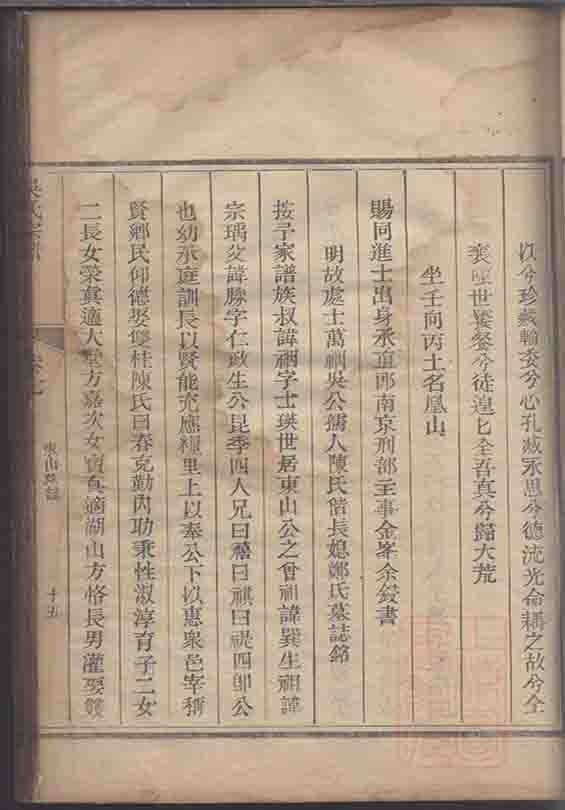 以兮珍藏輸委兮心孔臧永思兮德流光命耦之故兮全
世饕餮兮徒遑匕全吾真兮歸大荒
坐壬向丙土名凰山
賜同進士出身承直郎南京刑部主事金峯余 書
明故處士萬 吳公孺人陳氏偕長媳鄭氏墓誌銘
按予家譜族叔諱 字士瑛世居東山公之曾祖諱巽生祖諱
宗瑀父諱滕字仁政生公昆季四人兄曰禧曰祺曰禔四卽公
也幼承庭訓長以賢能充應糧里上以奉公下以惠衆邑宰稱
賢鄉民仰德娶雙桂陳氏曰春克勤內功秉性淑淳育子二女
二長女榮真適大塾方嘉次女寶真適湖山方恪長男灌娶
吳氏宗
卷七
東山墓誌
十五